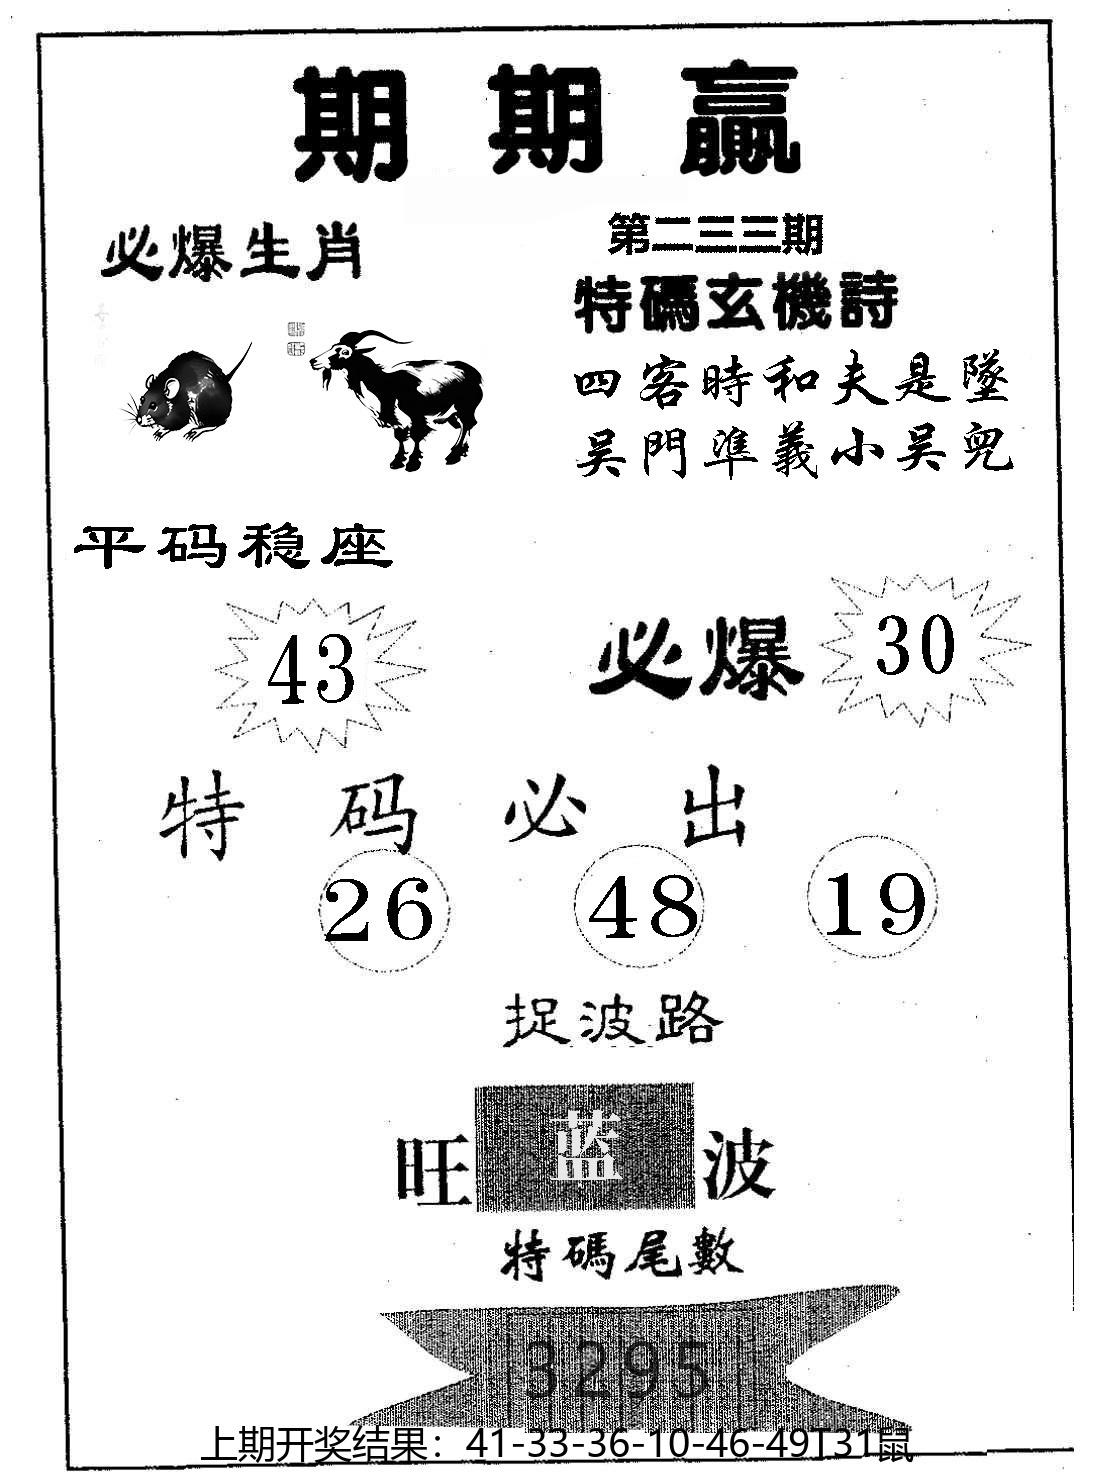 期期贏
必爆生肖
第二三三期
特碼玄機詩
四客時和夫是墜
吴門準義小吴兜
平码稳座
43
必爆
30
特码必出
26 48 19
捉波路
旺蓝波
特碼尾數
3295
上期开奖结果：41-33-36-10-46-49T31鼠